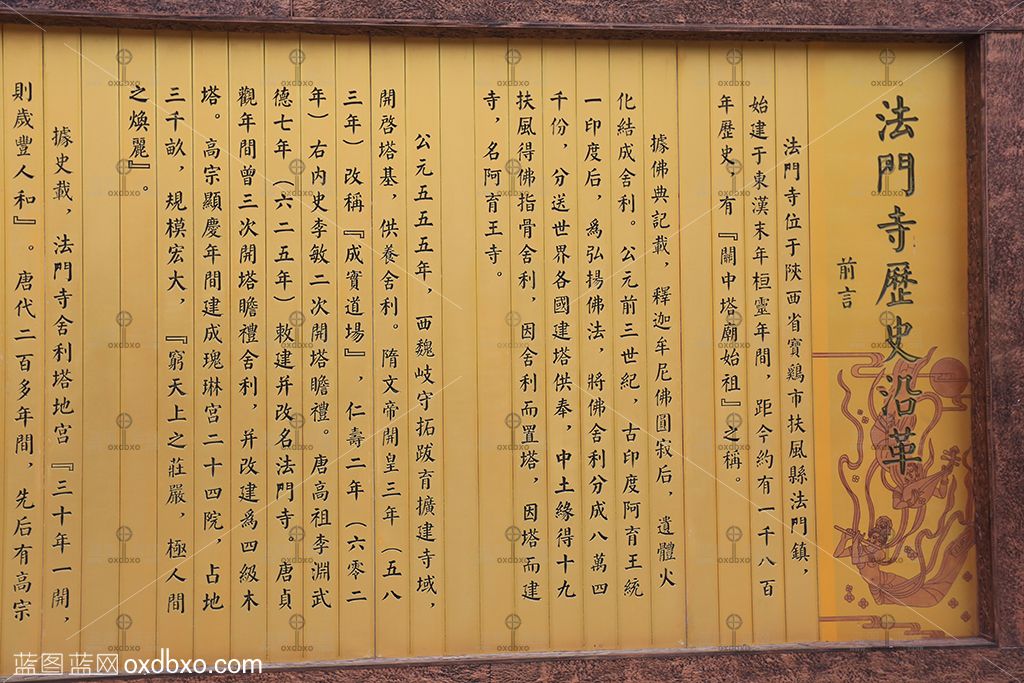 法門寺歷史沿革
前言
法門寺位于陝西省寶鷄市扶風縣法門鎮，
始建于東漢末年桓靈年間，距今約有一千八百
年歷史，有『關中塔廟始祖』之稱。
據佛典記載，釋迦牟尼佛圓寂后，遺體火
化結成舍利。公元前三世紀，古印度阿育王統
一印度后，爲弘揚佛法，將佛舍利分成八萬四
千份，分送世界各國建塔供奉，中土緣得十九
扶風得佛指骨舍利，因舍利而置塔，因塔而建
寺，名阿育王寺。
公元五五五年，西魏岐守拓跋育擴建寺域，
開啓塔基，供養舍利。隋文帝開皇三年（五八
三年）改稱『成實道場』，仁壽二年（六零二
年）右内史李敏二次開塔瞻禮。唐高祖李淵武
德七年（六二五年）敕建并改名法門寺。唐貞
觀年間曾三次開塔瞻禮舍利，并改建爲四級木
塔。高宗顯慶年間建成瑰琳宫二十四院，占地
三千畝，規模宏大，『窮天上之莊嚴，極人間
之焕麗』。
據史載，法門寺舍利塔地宫『三十年一開，
則歲豐人和』。唐代二百多年間，先后有高宗
蓝图蓝网 oxdbxo.com